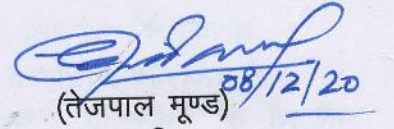 08/12/20
(तेजपाल मूण्ड)